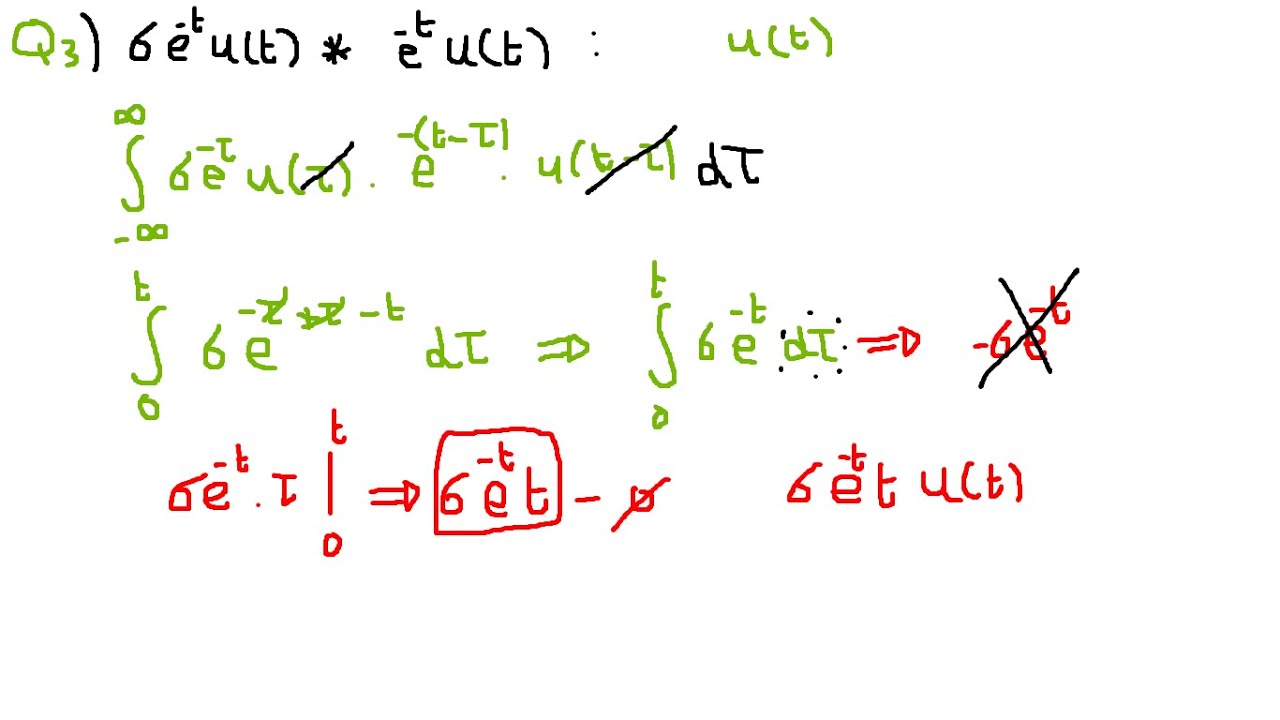 Q3) 6e^{-t} u(t) * e^{-t} u(t) : u(t)
∫_{-∞}^{∞} 6e^{-τ} u(τ) . e^{-(t-τ)} . u(t-τ) dτ
∫_{0}^{t} 6e^{-τ+τ-t} dτ ⇒ ∫_{0}^{t} 6e^{-t} dτ ⇒ -6e^{-t}
6e^{-t} . τ |_{0}^{t} ⇒ 6e^{-t} t - 0 6e^{-t} t u(t)